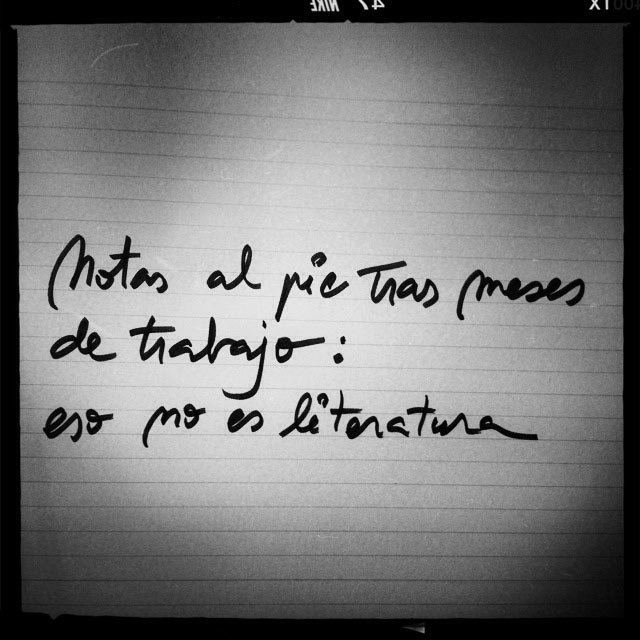 Notas al pie tras meses
de trabajo:
eso no es literatura